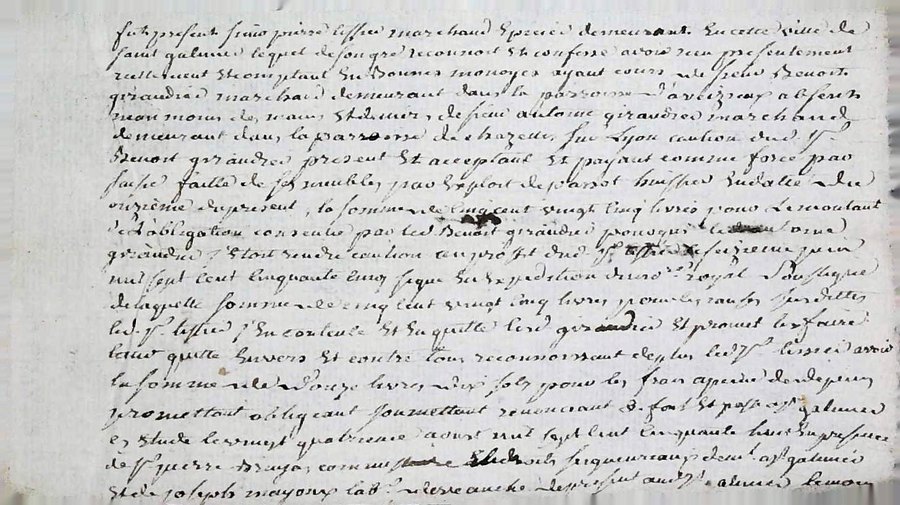 fut present sieur pierre tissier marchand epicier demeurant en cette ville de
saint galmier lequel de son gré reconnoit et confesse avoir reçu presentement
reellement et comptant en bonnes monoyes ayant cours de sieur Benoit
girandrié marchand demeurant dans la parroisse d'aveizieux absent
par mains et deniers de sieur antoine girandrié marchand
demeurant dans la parroisse de chazelles sur Lyon caution dud. Sr.
Benoit girandrié present et acceptant et payant comme forcé par
saisie faitte de ses meubles par exploit de huissier en datte du
onzieme du present, la somme de cinq cent vingt cinq livres pour le montant
de l'obligation consentie par led. Benoit girandrié
girandrié s'etoit rendu caution au profit dud. Sr. tissier le seizieme juin
mil sept cent cinquante cinq royal soussigné
de laquelle somme de cinq cent vingt cinq livres pour les causes susdittes
led. Sr. tissier s'en contente et en quitte lesd. girandrié et promet les faire
tenir quitte envers et contre tous reconnoissant de plus led. Sr. tissier avoir
la somme de d'ouze livres dix sols pour les frais
promettant obligeant soumettant renonciant &c fait et passé a St. galmier
en etude le vingt quatrieme aoust mil sept cent cinquante huit en presence
de Sr. pierre commis demt. a St. galmier
et de joseph